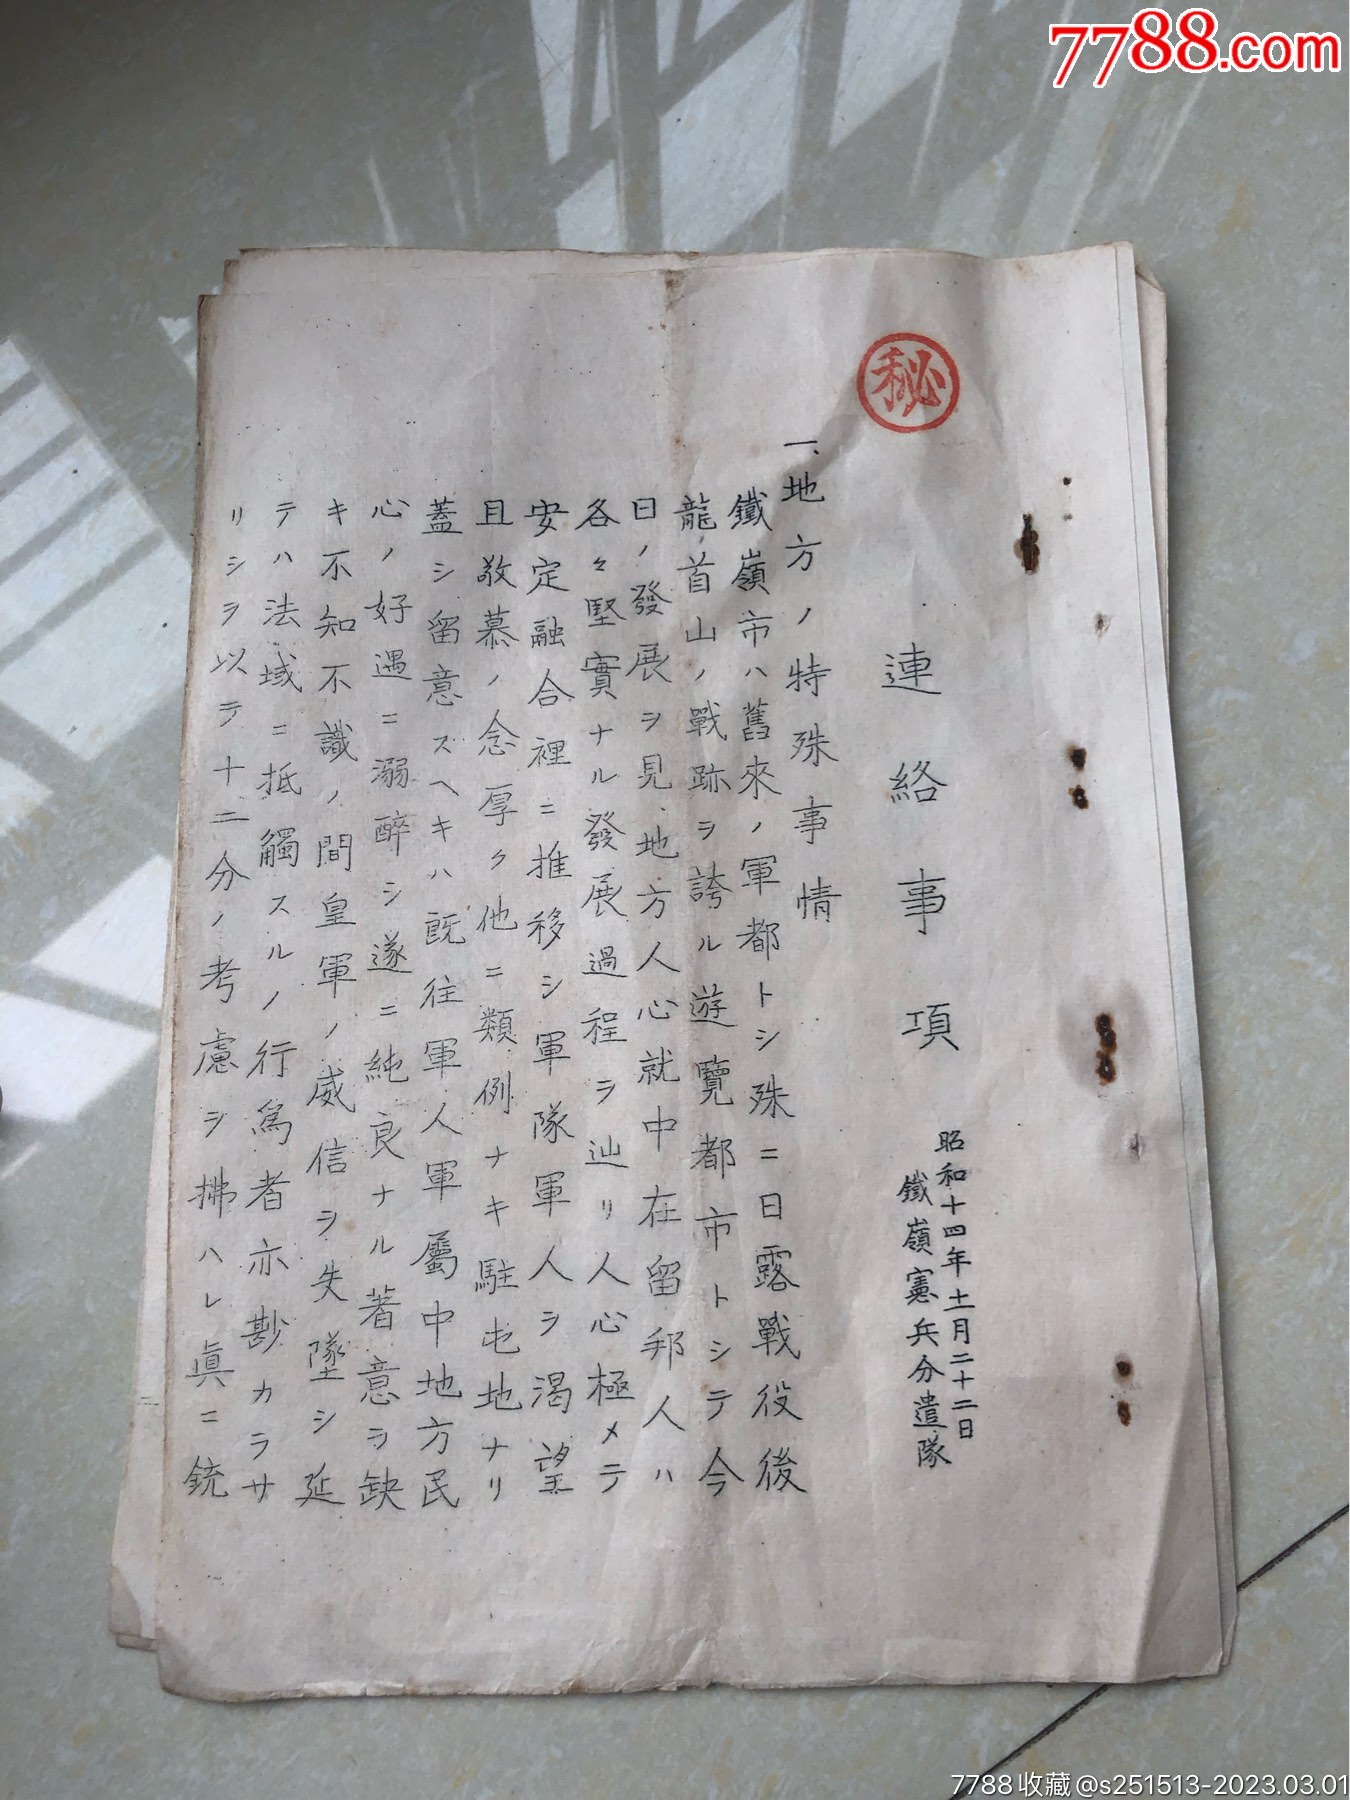 7788.com
秘
連絡事項
昭和十四年十一月二十二日
鐵嶺憲兵分遣隊
一、地方ノ特殊事情
鐵嶺市ハ舊來ノ軍都トシ殊ニ日露戰役後
龍首山ノ戰跡ヲ誇ル遊覽都市トシテ今
日ノ發展ヲ見地方人心就中在留邦人ハ
各々堅實ナル發展過程ヲ辿リ人心極メテ
安定融合裡ニ推移シ軍隊軍人ヲ渇望
且敬慕ノ念厚ク他ニ類例ナキ駐屯地ナリ
蓋シ留意スヘキハ既往軍人軍屬中地方民
心ノ好遇ニ溺醉シ遂ニ純良ナル著意ヲ缺
キ不知不識ノ間皇軍ノ威信ヲ失墜シ延
テハ法域ニ抵觸スルノ行爲者亦尠カラサ
リシヲ以テ十二分ノ考慮ヲ拂ハレ眞ニ銃
7788收藏@s251513-2023.03.01